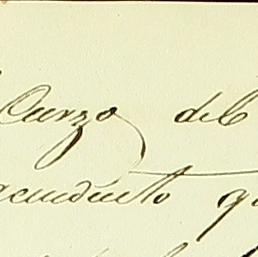 Curzo del
acueducto q